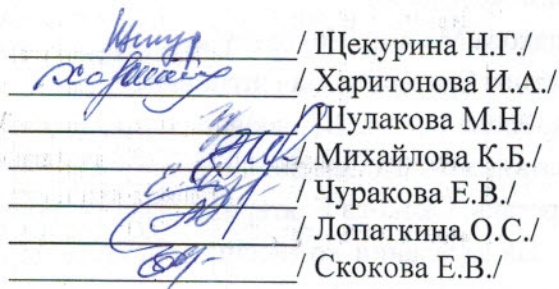 / Щекурина Н.Г./
/ Харитонова И.А./
/ Шулакова М.Н./
/ Михайлова К.Б./
/ Чуракова Е.В./
/ Лопаткина О.С./
/ Скокова Е.В./